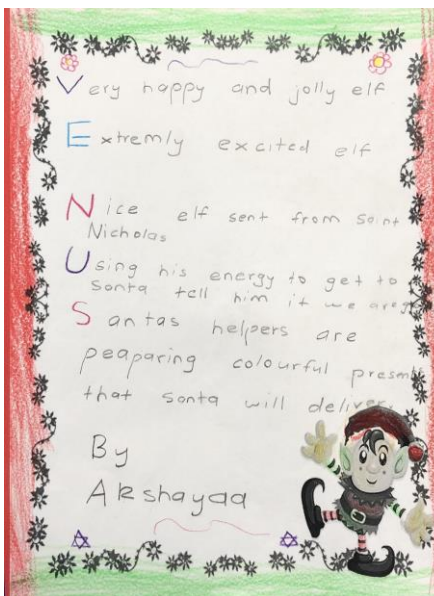 Very happy and jolly elf
Extremly excited elf
Nice elf sent from Saint
Nicholas
Using his energy to get to
Santa tell him if we are
Santas helpers are
peaparing colourful present
that Santa will deliver
By
Akshayaa